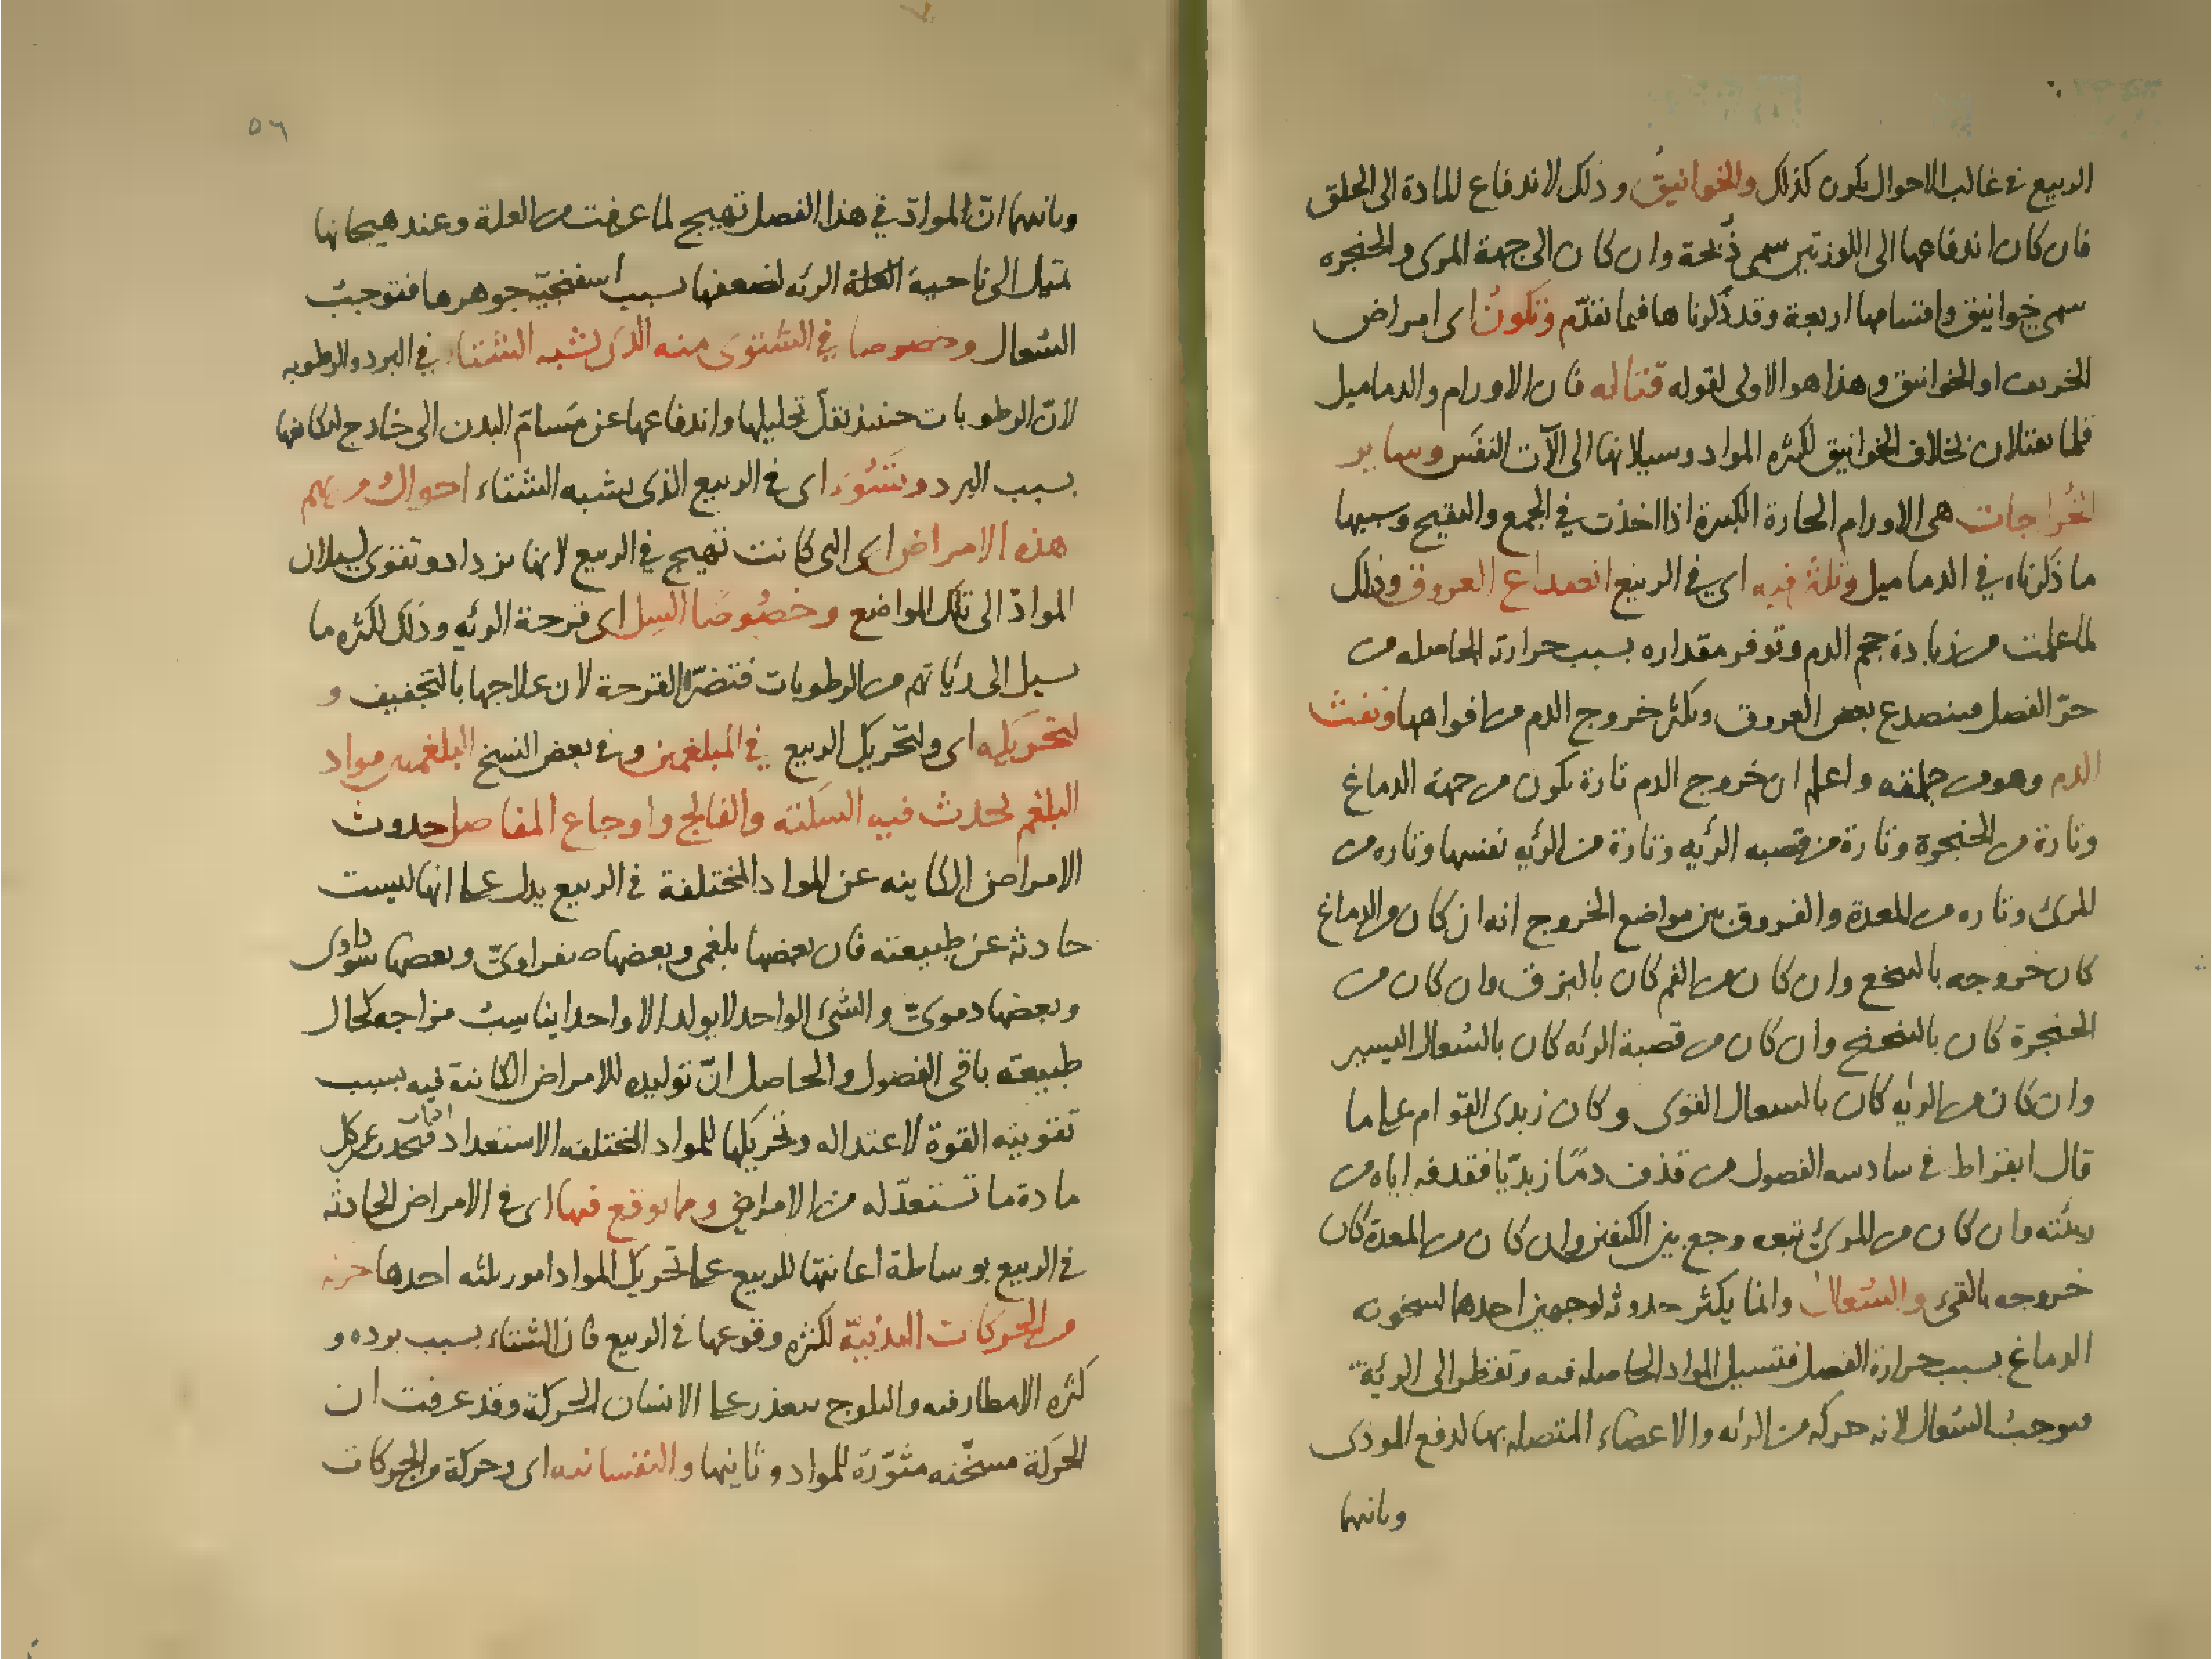 الربيع في غالب الاحوال يكون كذلك والخوانيق وذلك لاندفاع المادة الى الحلق
فان كان اندفاعها الى اللوزتين سمى ذبحة وان كان الى جهة المرى والحنجره
سمى خوانيق واقسامها اربعة وقد ذكرناها فيما تقدم وتكون اى امراض
الخريف او الخوانيق وهذا هو الاولى لقوله قتاله فان الاورام والدماميل
قلما يقتلان بخلاف الخوانيق لكثره المواد وسيلانها الى الآت النفس وساير
الخراجات هى الاورام الحارة الكبيرة اذا اخذت في الجمع والتقيح وسببها
ما ذكرناه في الدماميل وكثر فيه اى في الربيع انصداع العروق وذلك
لما علمت من زيادة حجم الدم وتوفر مقداره بسبب حرارته الحاصله من
حرّ الفصل فينصدع بعض العروق ويكثر خروج الدم من افواهها ونفث
الدم وهو من جملته واعلم ان خروج الدم تارة يكون من جهة الدماغ
وتارة من الحنجرة وتارة من قصبه الرئيه وتارة من الرئيه نفسها وتاره من
المرئ وتاره من المعدة والفروق بين مواضع الخروج انه ان كان من الدماغ
كان خروجه بالتنخع وان كان من الفم كان بالبزق وان كان من
الحنجرة كان بالتنحنح وان كان من قصبة الرئه كان بالسُعال اليسير
وان كان من الرئه كان بالسعال القوى وكان زبدى القوام على ما
قال ابقراط في سادسه الفصول من قذف دمًا زبديّا فقدفه اياه من
رئته وان كان من المرئ تبعه وجع بين الكتفين وان كان من المعدة كان
خروجه بالقىء والسُعال وانما يكثر حدوثه لوجهين احدها لسخونه
الدماغ بسبب حرارة الفصل فتسيل المواد الحاصله فيه وتقطر الى الرئية
فيوجب السُعال لانه حركه من الرئه والاعضاء المتصله بها لدفع الموذى
وثانيها
٥٦
وثانيها انّ الموادّ في هذا الفصل تهيج لما عرفت من العلة وعند هيجانها
تميل الى ناحية الرئه لضعفها بسبب اسفنجيّة جوهرها فتوجبُ
السُعال وخصوصا في الشتوى منه الذى يشبه الشتاء في البرد والرطوبه
لانّ الرطوبات حينئذ يقلّ تحليلها واندفاعها عن مَسامّ البدن الى خارج لتكاثفها
بسبب البرد وتَسُوء اى في الربيع الذى يشبه الشتاء احوال من بهم
هذه الامراض اى التى كانت تهيج في الربيع لانها يزداد وتقوى لسيلان
الموادّ الى تلك المواضع وخصُوصًا السِل اى قرحة الرئه وذلك لكثره ما
يسيل الى رئاتهم من الرطوبات فتضرّ القرحة لان علاجها بالتجفيف و
لتحريكه اى ولتحريك الربيع في المبلغمين وفي بعض النسخ البلغميين مواد
البلغم تحدث فيه السَكته والفالج واوجاع المفاصل حدوث
الامراض الكاينه عن المواد المختلفة في الربيع يدل على انها ليست
حادثه عن طبيعته فان بعضها بلغمى وبعضها صفراوىّ وبعضها سوداوى
وبعضها دموىّ والشئ الواحد لا يولد الا واحدا يناسِبُ مزاجه كحال
طبيعة باقى الفصول والحاصل انّ توليده للامراض الكائنة فيه بسبب
تقويته القوة لاعتداله وتحريكها للمواد المختلفه الاستعدادات فتحدث عن كل
مادة ما تستعدّ له من الامراض ومما يوقع فيها اى في الامراض الحادثه
في الربيع بوساطة اعانتها للربيع على تحريك المواد امور ثلثه احدها
من الحركات البدنيّة لكثره وقوعها في الربيع فان الشتاء بسبب برده و
كثره الامطار فيه والثلوج يتعذر على الانسان الحركة وقد عرفت ان
الحركة مسخّنه مثوّرة للمواد وثانيها والنفسانيه اى وحركة من الحركات